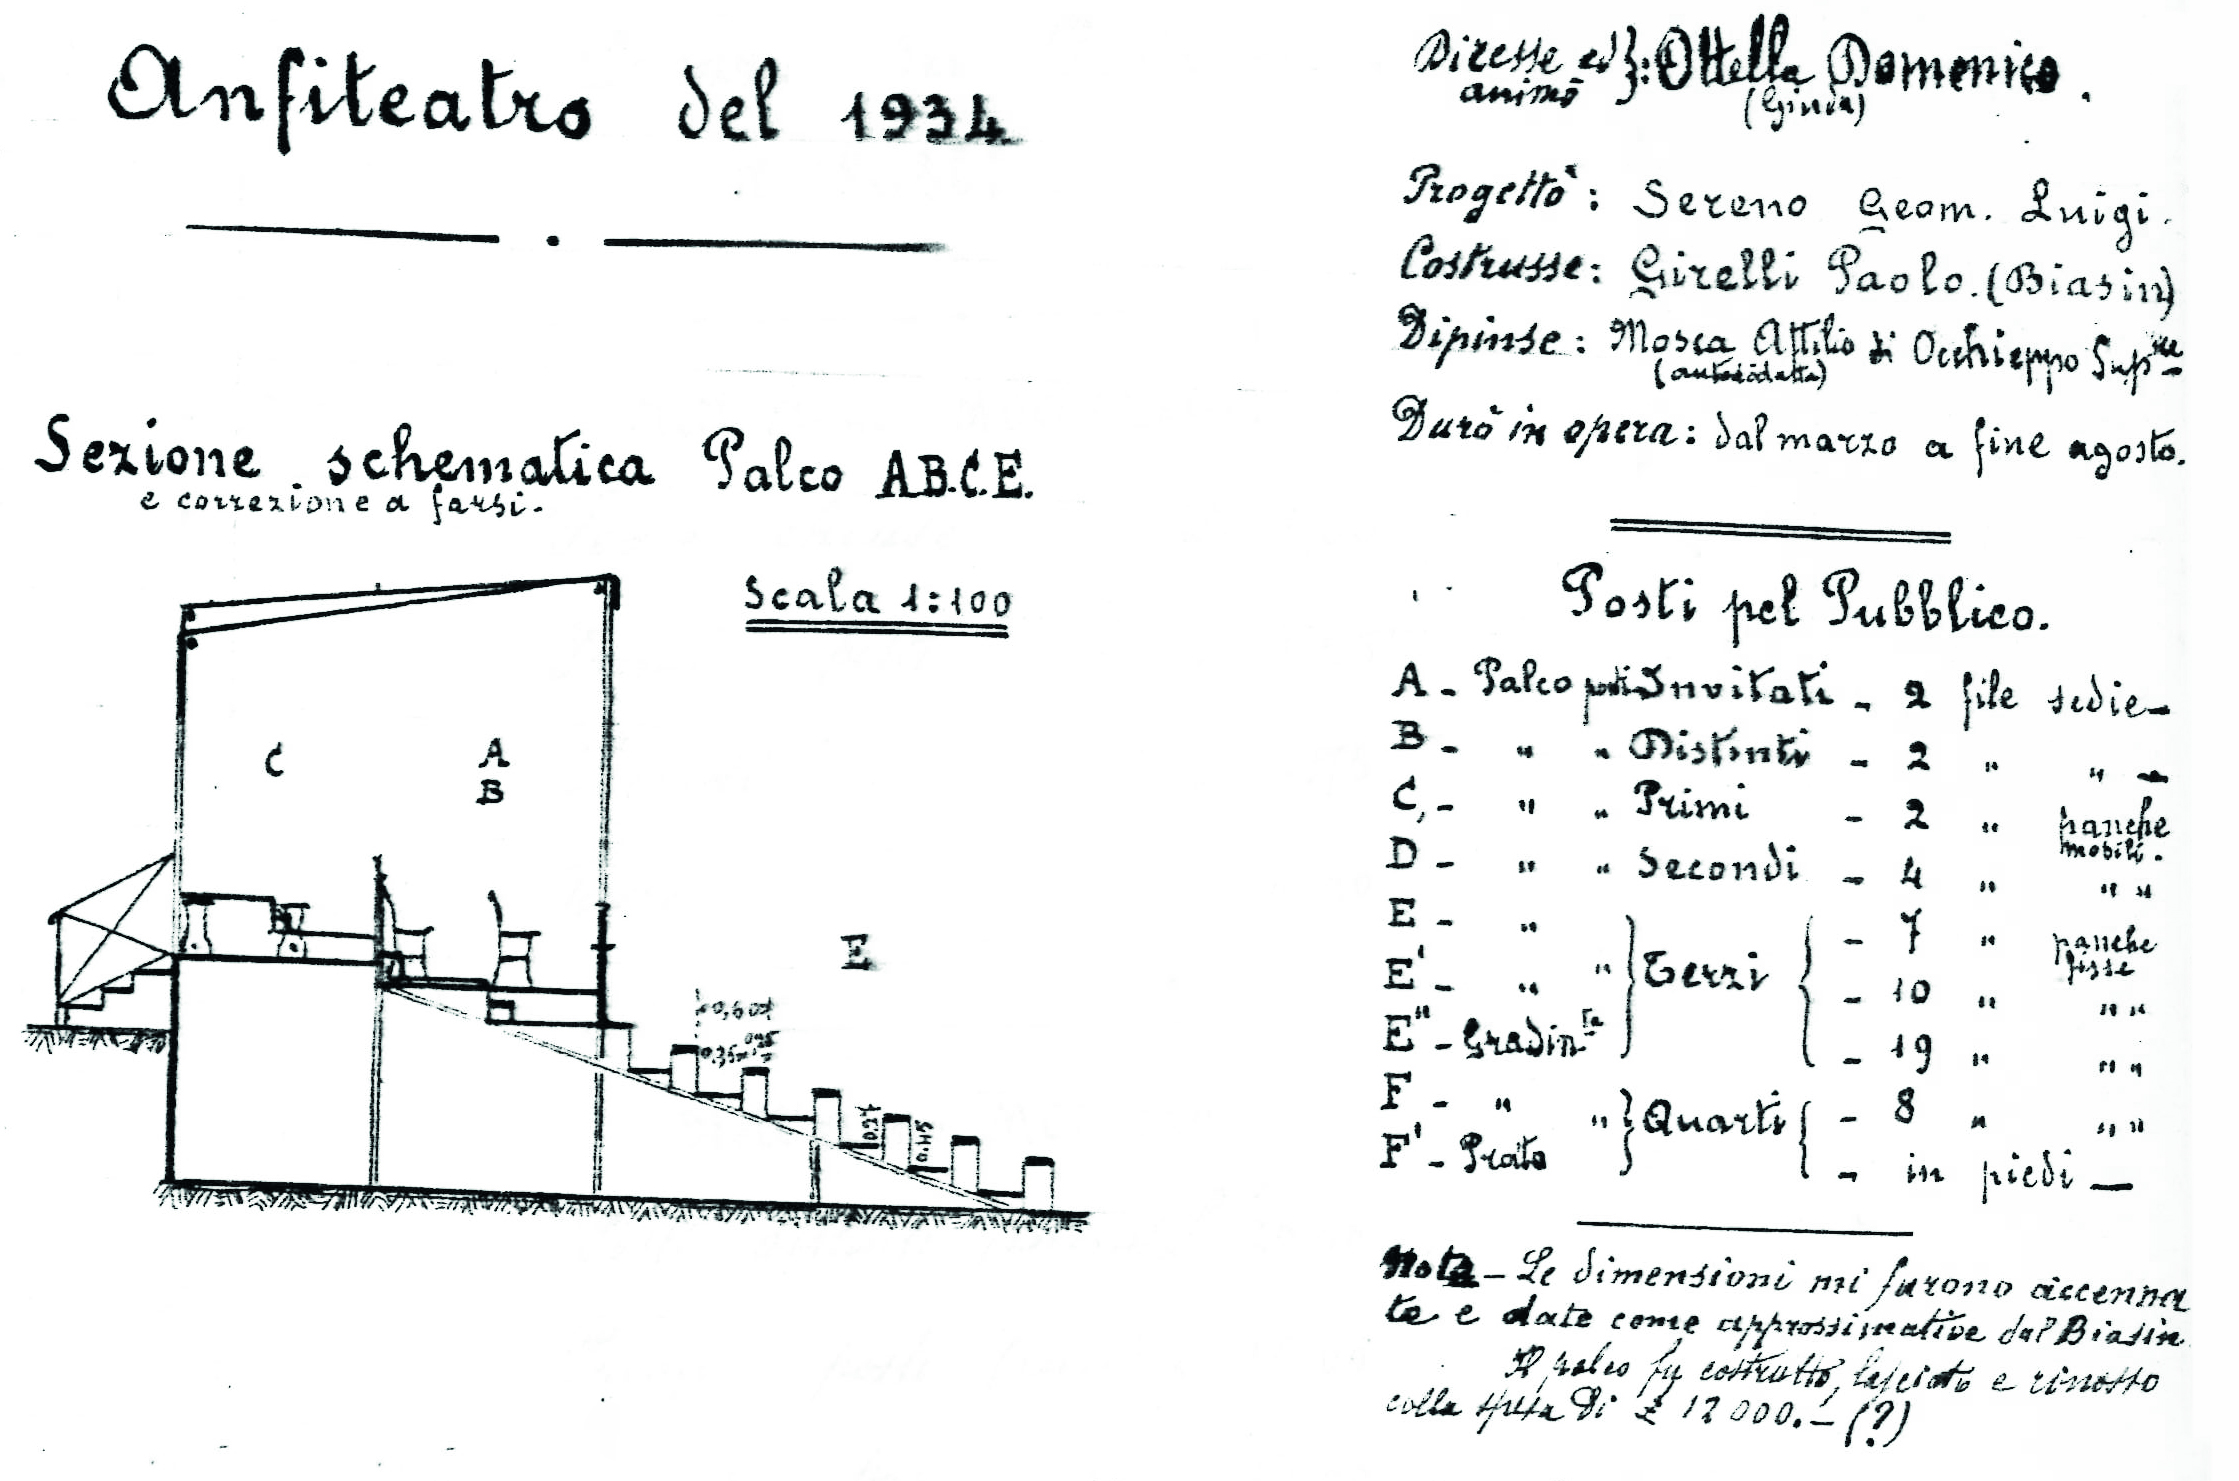 Anfiteatro del 1934
Sezione schematica Palco A.B.C.E.
e correzione a farsi.
Scala 1:100
C
A
B
E
0,60
0,35
Diresse ed animò }: Ottella Domenico.
Progettò: Sereno Geom. Luigi.
Costrusse: Girelli Paolo. (Biasin)
Dipinse: Mosca Attilio di Occhieppo Supre
(autodidatta)
Durò in opera: dal marzo a fine agosto.
Posti pel Pubblico.
A - Palco posti Invitati - 2 file sedie -
B - " " Distinti - 2 " " -
C, - " " Primi - 2 " panche mobili.
D - " " Secondi - 4 " " "
E - " - 7 " panche fisse
E' - " " } Terzi { - 10 " " "
E" - Gradin.ta - 19 " " "
F - " " } Quarti { - 8 " " "
F' - Prato - in piedi -
Nota - Le dimensioni mi furono accenna
te e date come approssimative dal Biasin
Il palco fu costrutto, lasciato e rimosso
colla spesa di £ 12 000. - (?)